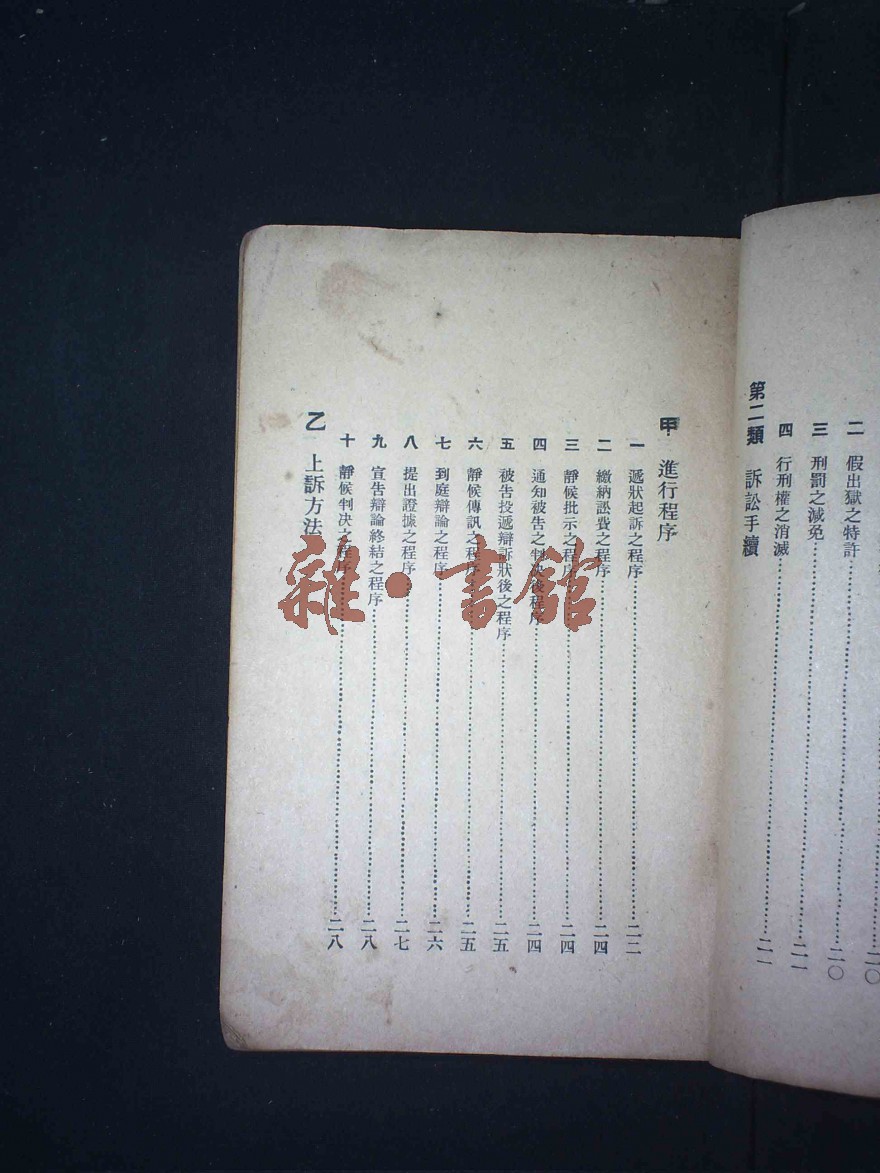 二 假出獄之特許……二〇
三 刑罰之減免……二〇
四 行刑權之消滅……二一
第二類 訴訟手續……二一
甲 進行程序
一 遞狀起訴之程序……二二
二 繳納訟費之程序……二四
三 靜候批示之程序……二四
四 通知被告之判決後程序……二四
五 被告投遞辯訴狀後之程序……二五
六 靜候傳訊之程序……二五
七 到庭辯論之程序……二六
八 提出證據之程序……二七
九 宣告辯論終結之程序……二八
十 靜候判決之程序……二八
乙 上訴方法
雜·書館